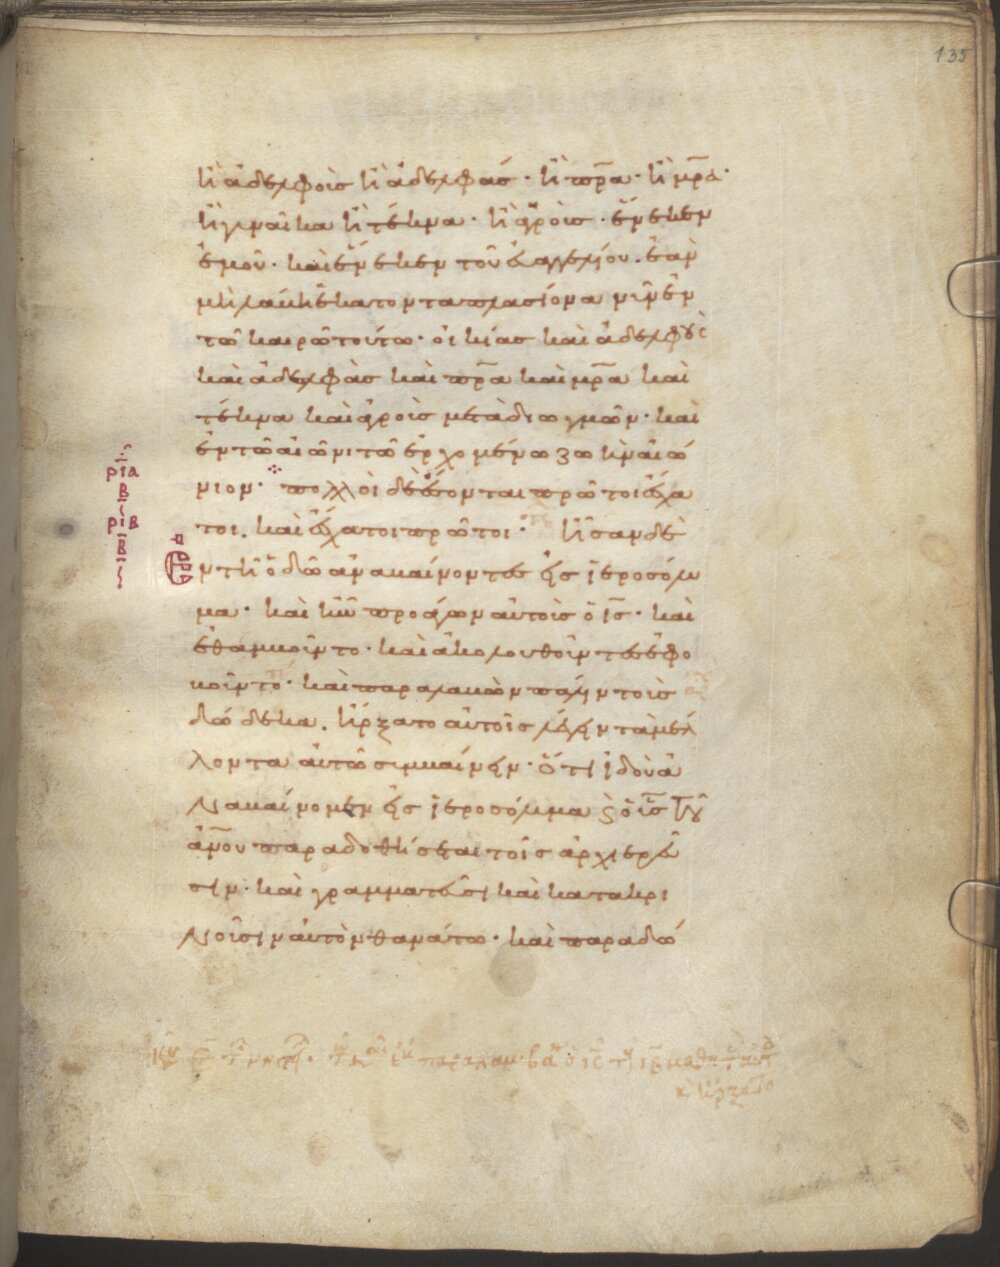 135
ἢ ἀδελφοὺς ἢ ἀδελφάς· ἢ πρα· ἢ μρα·
ἢ γυναῖκα ἢ τέκνα· ἢ ἀγροὺς· ἕνεκεν
ἐμοῦ· καὶ ἕνεκεν τοῦ εὐαγγελίου. ἐὰν
μὴ λάβη ἑκατονταπλασίονα νῦν ἐν
τῶ καιρῶ τούτω· οἰκίας καὶ ἀδελφοὺς
καὶ ἀδελφὰς καὶ πρα καὶ μρα καὶ
τέκνα καὶ ἀγροὺς μετὰ διωγμῶν· καὶ
ἐν τῶ αἰῶνι τῶ ἐρχομένω ζωὴν αἰώ
νιον· πολλοὶ δὲ ἔσονται πρῶτοι ἔσχα
τοι. καὶ ἔσχατοι πρῶτοι· ἦσαν δὲ
ρια
β
ριβ
β
ἐν τῆ ὁδῶ ἀναβαίνοντες εἰς ἱεροσόλυ
μα· καὶ ἦν προάγων αὐτοὺς ὁ ις· καὶ
ἐθαμβοῦντο· καὶ ἀκολουθοῦντες ἐφο
βοῦντο· καὶ παραλαβὼν πάλιν τοὺς
δώδεκα. ἤρξατο αὐτοῖς λέγειν τὰ μέλ
λοντα αὐτῶ συμβαίνειν· ὅτι ἰδοὺ ἀ
ναβαίνομεν εἰς ἱεροσόλυμα καὶ ὁ υς τοῦ
ανου παραδοθήσεται τοῖς ἀρχιερεῦ
σιν· καὶ γραμματεῦσι καὶ κατακρι
νοῦσιν αὐτὸν θανάτω· καὶ παραδώ
παραλαμβα ὁ ις τ ιβ μαθητ αὐτ
κ ἤρξατο